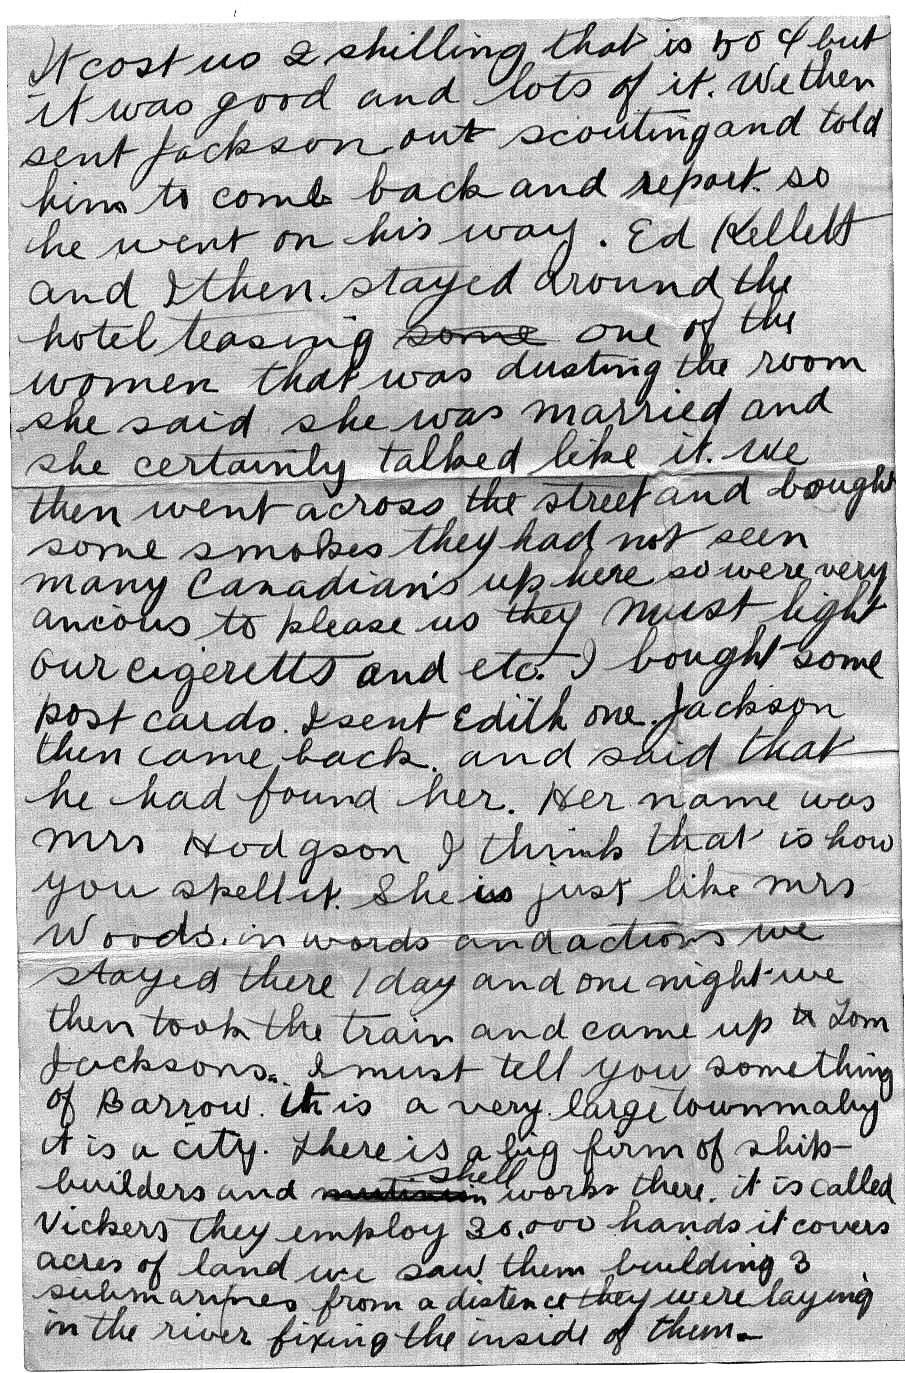 It cost us 2 shilling that is 50 ¢ but
it was good and lots of it. We then
sent Jackson out scouting and told
him to come back and report. so
he went on his way. Ed Kellett
and I then. stayed around the
hotel teasing some one of the
women that was dusting the room
she said she was married and
she certainly talked like it. We
then went across the street and bought
some smokes they had not seen
many Canadian's up here so were very
ancious to please us they must light
our cigeretts and etc. I bought some
post cards. I sent Edith one. Jackson
then came back. and said that
he had found her. Her name was
Mrs Hodgson I think that is how
you spell it. She is just like Mrs
Woods. in words and actions we
stayed there 1 day and one night we
then took the train and came up to Tom
Jacksons. I must tell you something
of Barrow. it is a very large town maby
it is a city. There is a big firm of ship-
builders and shell works there. it is called
Vickers they employ 30,000 hands it covers
acres of land we saw them building 3
submarines from a distence they were laying
in the river fixing the inside of them.